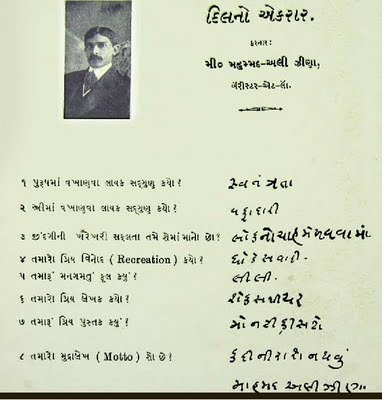 દિલનો એકરાર.
કરનાર:
મી૦ મહુમ્મદ-અલી ઝીણા,
બૅરીસ્ટર-એટ-લૉ.
૧ પુરુષમાં વખાણવા લાયક સદ્‌ગુણ કયો? સ્વતંત્રતા
૨ સ્ત્રીમાં વખાણવા લાયક સદ્‌ગુણ કયો? વફાદારી
૩ જીંદગીની ખરેખરી સફલતા તમે શેમાં માનો છો? લોકનો ચાહ મેળવવામાં
૪ તમારો પ્રિય વિનોદ (Recreation) કયો? ઘોડેસવારી.
૫ તમારૂં મનગમતું ફૂલ કયું? લીલી.
૬ તમારો પ્રિય લેખક કયો? શેક્સપીયર
૭ તમારૂં પ્રિય પુસ્તક કયું? મોન્ટી ક્રીસ્ટો
૮ તમારો મુદ્રાલેખ (Motto) શો છે? કદી નીરાશ ન થવું
માહમદ અલી ઝીણા